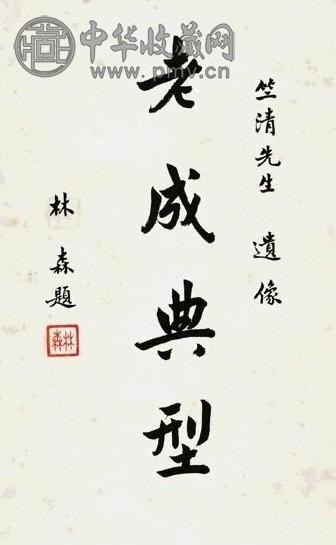 中华收藏网
www.pmv.cn
竺清先生 遺像
老成典型
林森題
林森